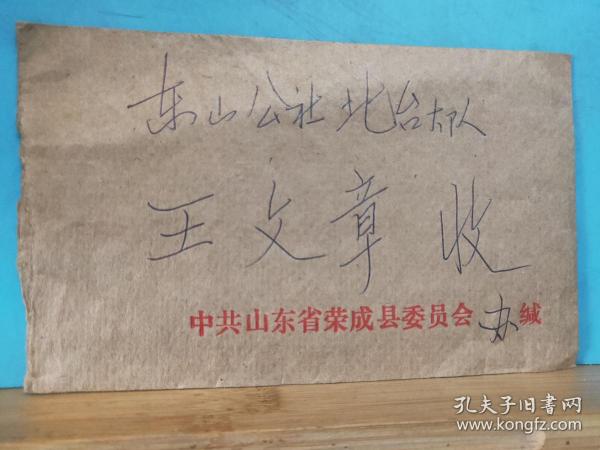 东山公社北台大队
王文章 收
中共山东省荣成县委员会办缄
孔夫子旧书网
www.kongfz.com